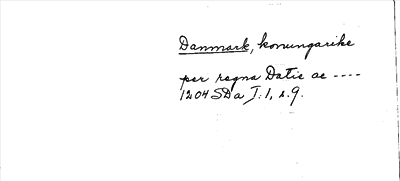 Danmark, konungarike
per regna Datie ac ----
1204 SDa I:1, s.9.